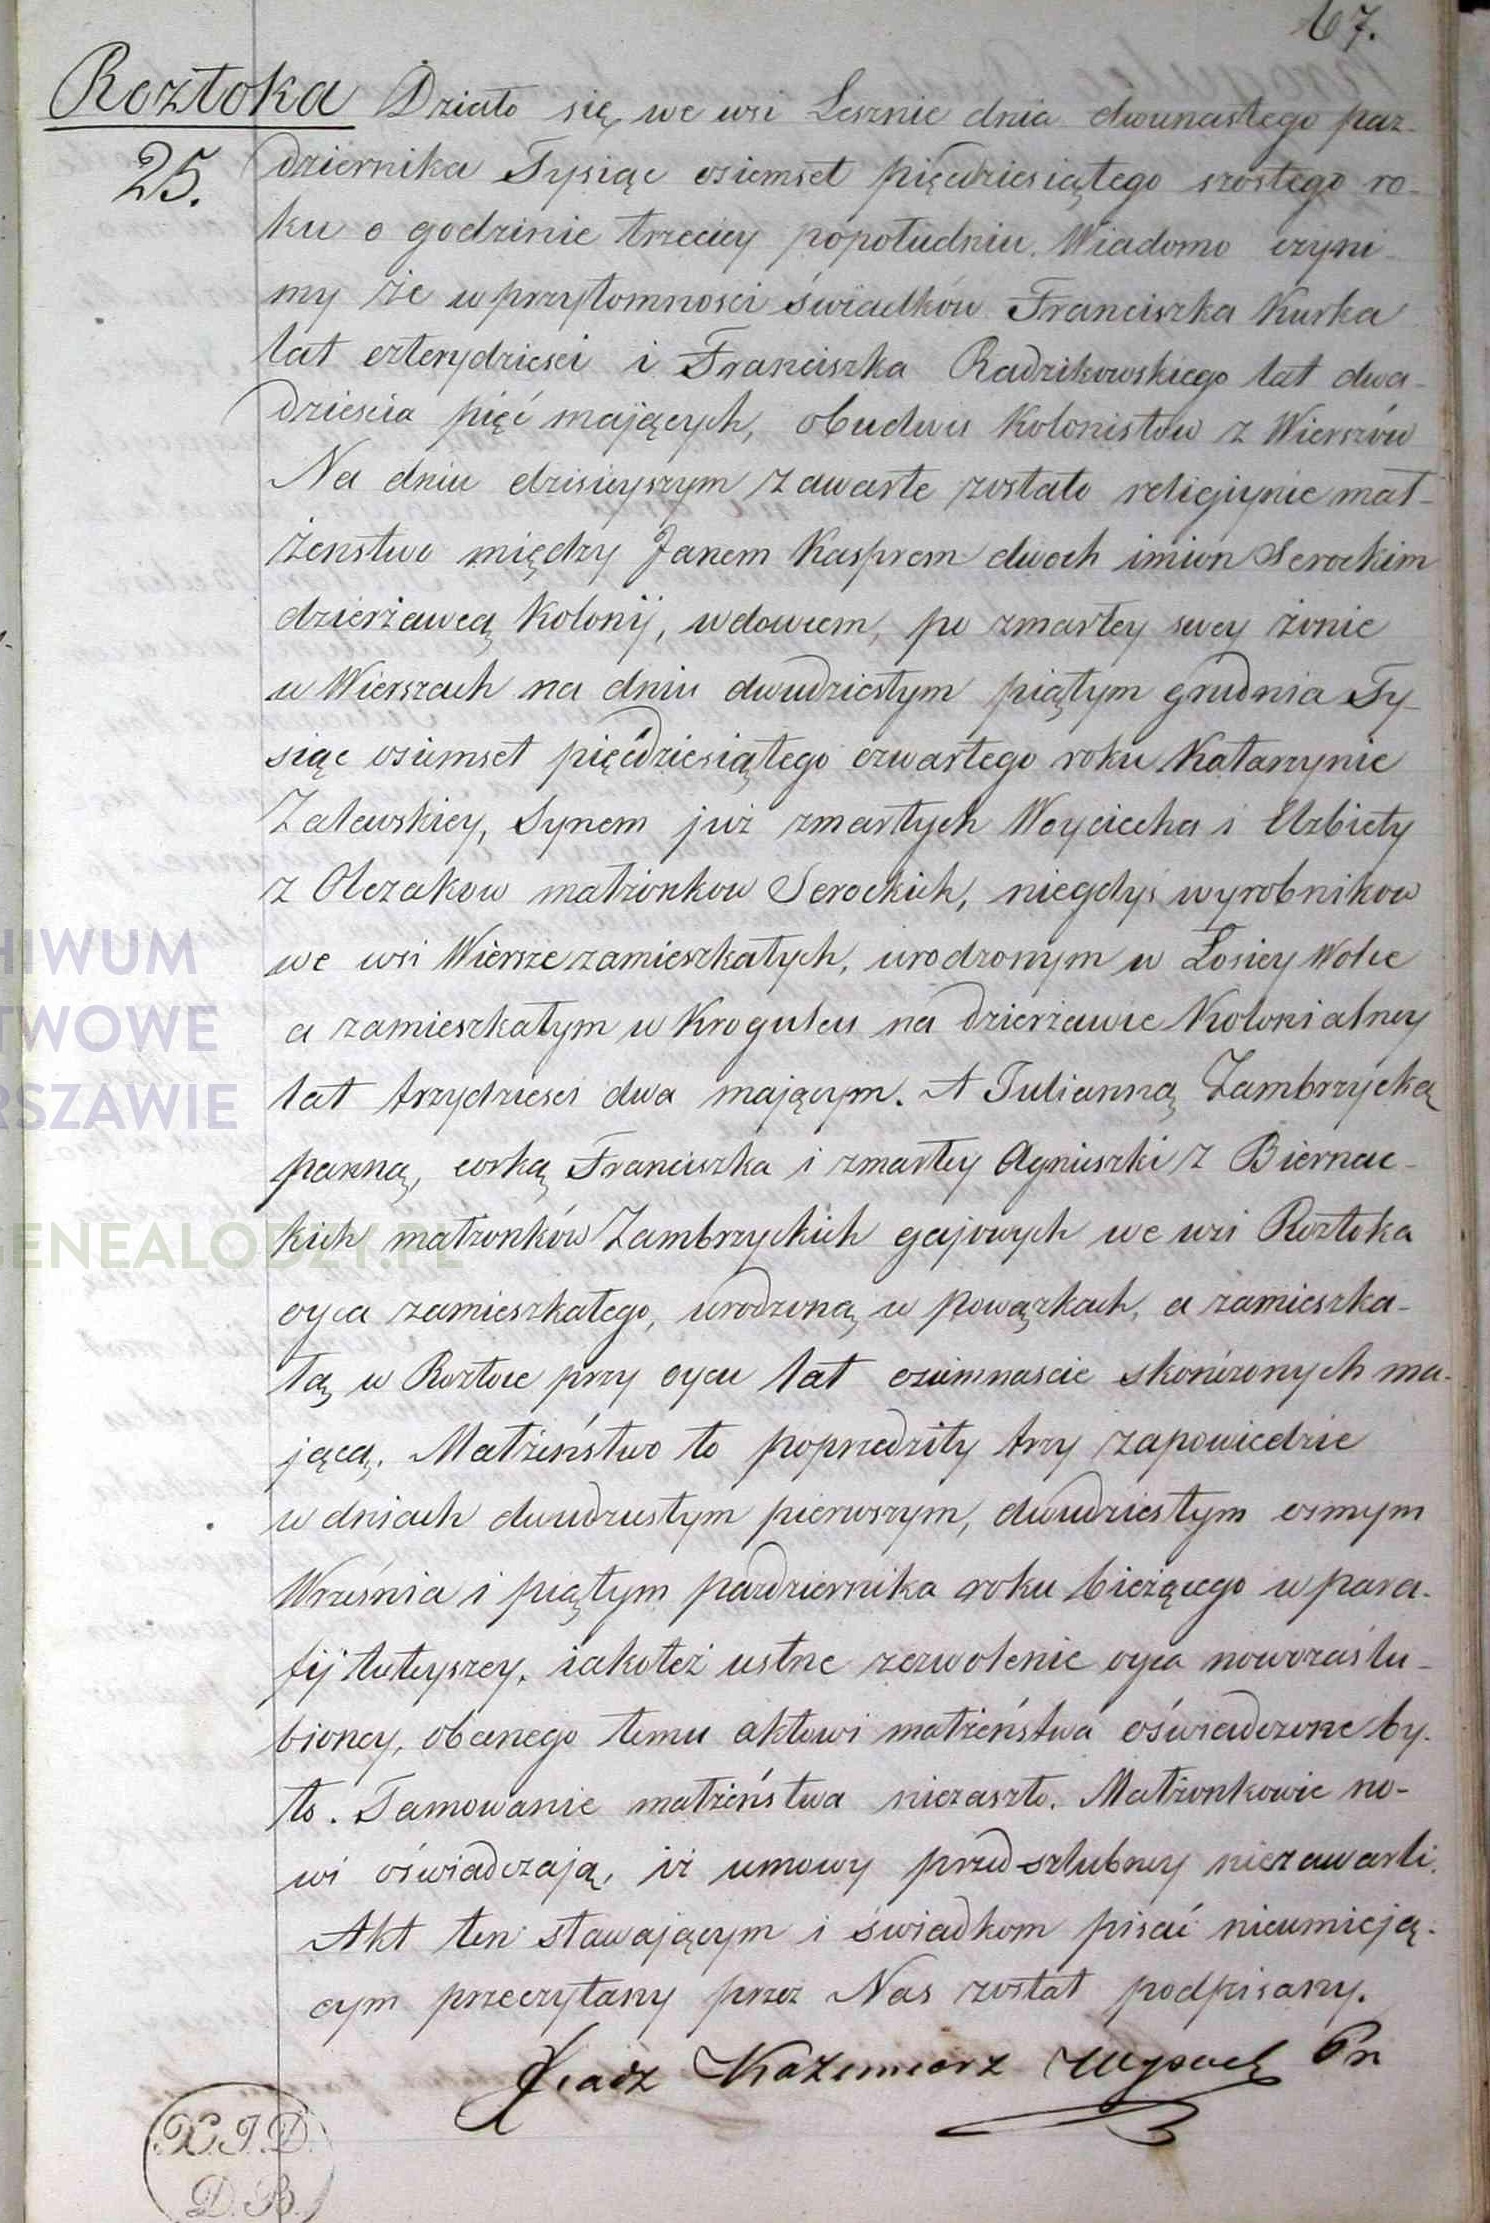 67.
Roztoka
25.
Działo się we wsi Lesznie dnia dwunastego paz-
dziernika Tysiąc osiemset pięćdziesiątego szostego ro-
ku o godzinie trzeciey popołudniu. Wiadomo czyni-
my że w przytomności świadków Franciszka Kurka
lat czterydzieści i Franciszka Radzikowskiego lat dwa-
dzieścia pięć mających, obudwu Kolonistow z Wierszów
Na dniu dzisieyszym zawarte zostało religiynie mał-
żenstwo między Janem Kasprem dwoch imion Serockim
dzierżawcą Kolonij, wdowcem, po zmarłey swey żonie
w Wierszach na dniu dwudziestym piątym grudnia Ty-
siąc osiemset pięćdziesiątego czwartego roku Katarzynie
Zalewskiey, Synem już zmarłych Woyciecha i Elzbiety
z Olczakow małżonkow Serockich, niegdyś wyrobnikow
we wsi Wiersze zamieszkałych, urodzonym w Łosiey Wolce
a zamieszkałym w Krogulcu na dzierżawie Kolonialney
lat trzydzieści dwa mającym. A Julianną Zambrzycką
panną, corką Franciszka i zmarłey Agnieszki z Biernac-
kich małzonków Zambrzyckich gajowych we wsi Roztoka
oyca zamieszkałego, urodzoną w Powązkach, a zamieszka-
łą w Roztoce przy oycu lat osiemnascie skończonych ma-
jącą. Małżeństwo to poprzedziły trzy zapowiedzie
w dniach dwudziestym pierwszym, dwudziestym osmym
Września i piątym pazdziernika roku bieżącego w para-
fij tuteyszey, iakoteż ustne zezwolenie oyca nowozaślu-
bioney, obecnego temu aktowi małżeństwa oświadczone by-
ło. Tamowanie małżeństwa niezaszło. Małżonkowie no-
wi oświadczają, iż umowy przedszlubney niezawarli.
Akt ten stawającym i świadkom pisać nieumieją-
cym przeczytany przez Nas został podpisany.
Xiądz Kazimierz
X.I.D.
D.B.
ARCHIWUM
PAŃSTWOWE
W WARSZAWIE
GENEALODZY.PL